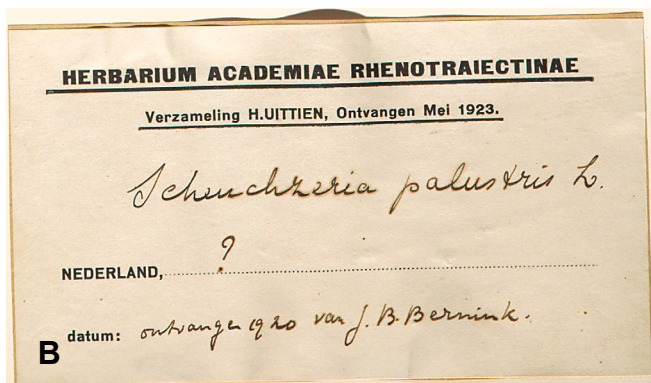 HERBARIUM ACADEMIAE RHENOTRAIECTINAE
Verzameling H.UITTIEN, Ontvangen Mei 1923.
Scheuchzeria palustris L.
?
NEDERLAND,
datum: ontvangen 1920 van J. B. Bernink.
B